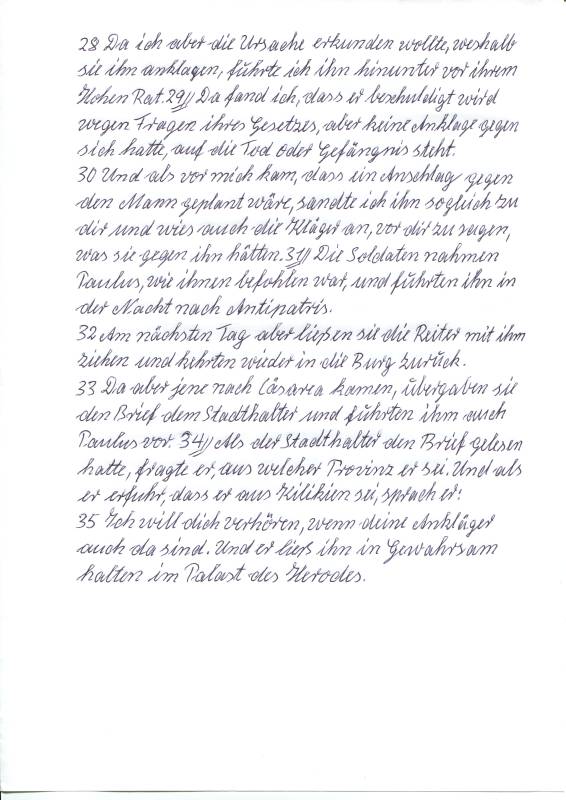 28 Da ich aber die Ursache erkunden wollte, weshalb
sie ihn anklagen, führte ich ihn hinunter vor ihrem
Hohen Rat. 29// Da fand ich, dass er beschuldigt wird
wegen Fragen ihres Gesetzes, aber keine Anklage gegen
sich hatte, auf die Tod oder Gefängnis steht.
30 Und als vor mich kam, dass ein Anschlag gegen
den Mann geplant wäre, sandte ich ihn sogleich zu
dir und wies auch die Kläger an, vor dir zu sagen,
was sie gegen ihn hätten. 31// Die Soldaten nahmen
Paulus, wie ihnen befohlen war, und führten ihn in
der Nacht nach Antipatris.
32 Am nächsten Tag aber ließen sie die Reiter mit ihm
ziehen und kehrten wieder in die Burg zurück.
33 Da aber jene nach Cäsarea kamen, übergaben sie
den Brief dem Stadthalter und führten ihm auch
Paulus vor. 34// Als der Stadthalter den Brief gelesen
hatte, fragte er, aus welcher Provinz er sei. Und als
er erfuhr, dass er aus Kilikien sei, sprach er:
35 Ich will dich verhören, wenn deine Ankläger
auch da sind. Und er ließ ihn in Gewahrsam
halten im Palast des Herodes.